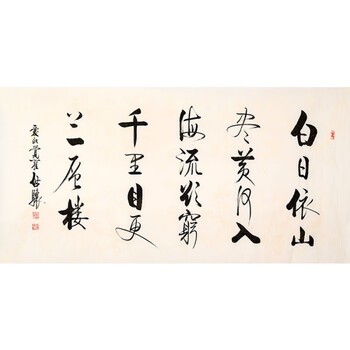 白日依山
尽黄河入
海流欲窮
千里目更
上一层楼